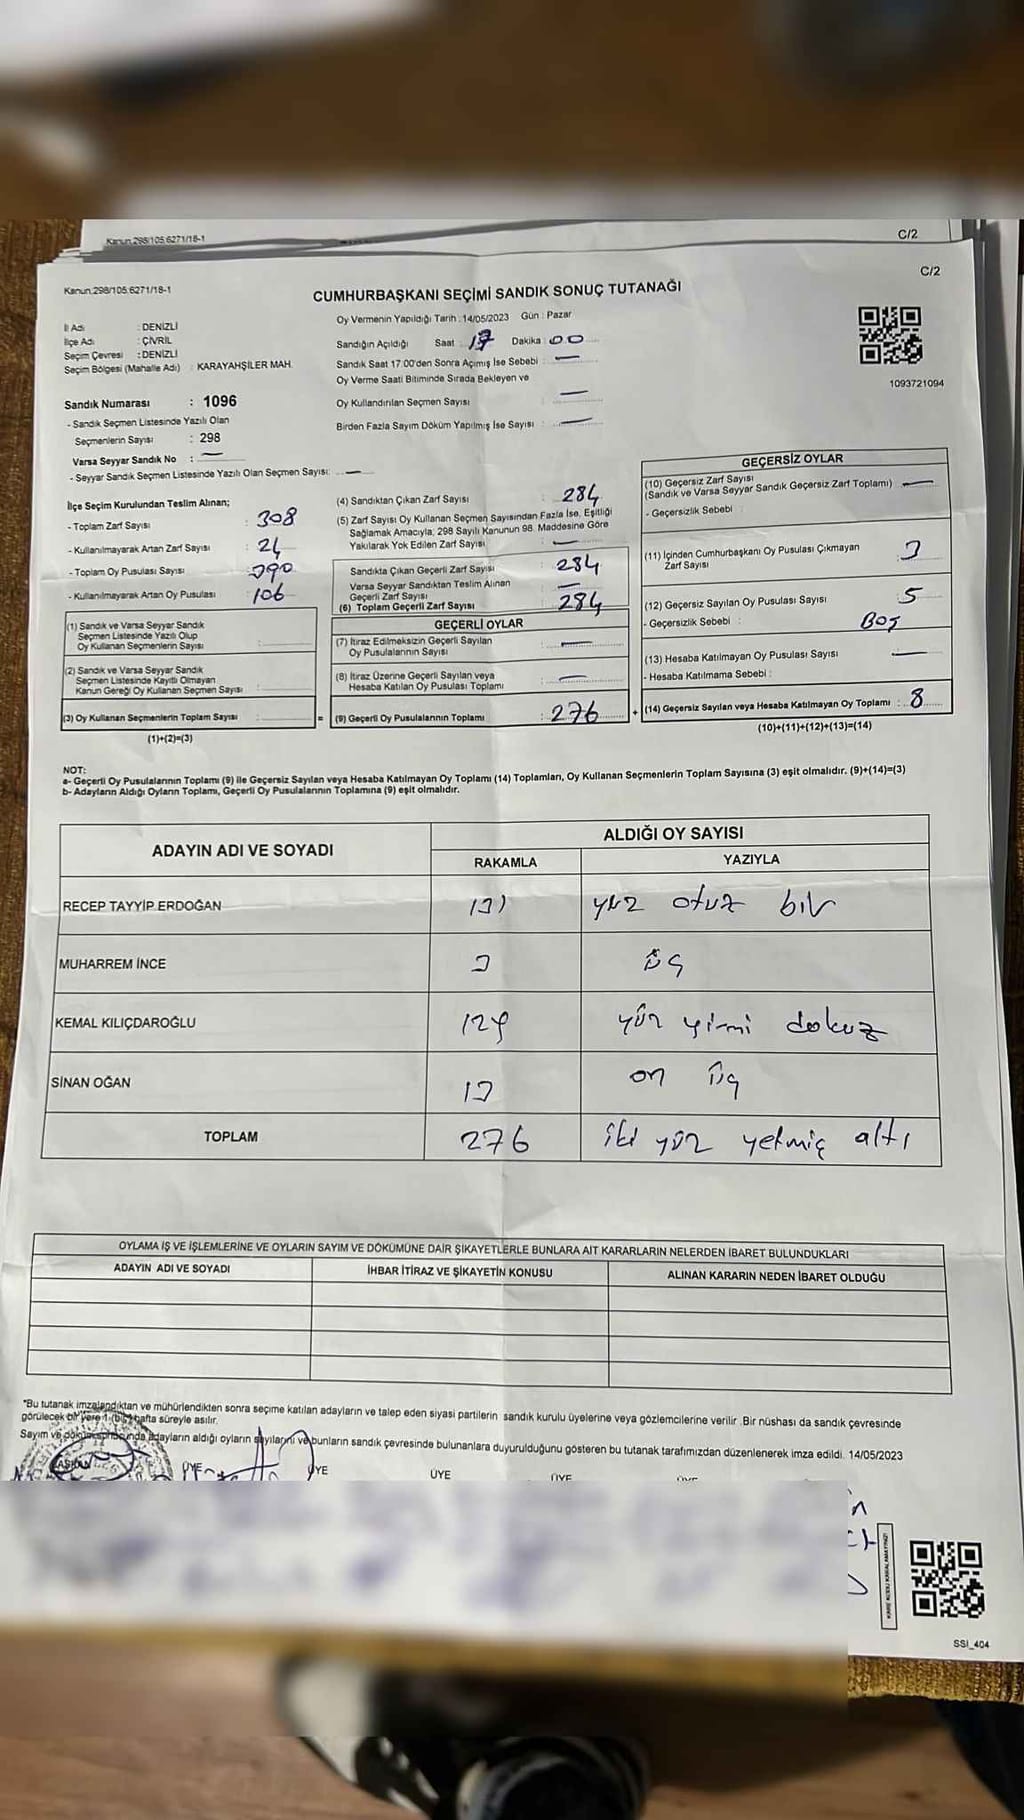 Kanun.298/105.6271/18-1
C/2
C/2
Kanun.298/105.6271/18-1
CUMHURBAŞKANI SEÇİMİ SANDIK SONUÇ TUTANAĞI
İl Adı : DENİZLİ
İlçe Adı : ÇİVRİL
Seçim Çevresi : DENİZLİ
Seçim Bölgesi (Mahalle Adı) : KARAYAHŞİLER MAH.
Oy Vermenin Yapıldığı Tarih : 14/05/2023 Gün : Pazar
Sandığın Açıldığı Saat : 17 Dakika : 00
Sandık Saat 17.00'den Sonra Açımış İse Sebebi : —
Oy Verme Saati Bitiminde Sırada Bekleyen ve
Oy Kullandırılan Seçmen Sayısı : —
Birden Fazla Sayım Döküm Yapılmış İse Sayısı : —
1093721094
Sandık Numarası : 1096
- Sandık Seçmen Listesinde Yazılı Olan
Seçmenlerin Sayısı : 298
Varsa Seyyar Sandık No : —
- Seyyar Sandık Seçmen Listesinde Yazılı Olan Seçmen Sayısı: —
İlçe Seçim Kurulundan Teslim Alınan;
- Toplam Zarf Sayısı : 308
- Kullanılmayarak Artan Zarf Sayısı : 24
- Toplam Oy Pusulası Sayısı : 390
- Kullanılmayarak Artan Oy Pusulası : 106
(1) Sandık ve Varsa Seyyar Sandık
Seçmen Listesinde Yazılı Olup
Oy Kullanan Seçmenlerin Sayısı :
(2) Sandık ve Varsa Seyyar Sandık
Seçmen Listesinde Kayıtlı Olmayan
Kanun Gereği Oy Kullanan Seçmen Sayısı :
(3) Oy Kullanan Seçmenlerin Toplam Sayısı : =
(1)+(2)=(3)
(4) Sandıktan Çıkan Zarf Sayısı : 284
(5) Zarf Sayısı Oy Kullanan Seçmen Sayısından Fazla İse, Eşitliği
Sağlamak Amacıyla; 298 Sayılı Kanunun 98. Maddesine Göre
Yakılarak Yok Edilen Zarf Sayısı : —
Sandıkta Çıkan Geçerli Zarf Sayısı : 284
Varsa Seyyar Sandıktan Teslim Alınan
Geçerli Zarf Sayısı : —
(6) Toplam Geçerli Zarf Sayısı : 284
GEÇERLİ OYLAR
(7) İtiraz Edilmeksizin Geçerli Sayılan
Oy Pusulalarının Sayısı : —
(8) İtiraz Üzerine Geçerli Sayılan veya
Hesaba Katılan Oy Pusulası Toplamı : —
(9) Geçerli Oy Pusulalarının Toplamı : 276 +
GEÇERSİZ OYLAR
(10) Geçersiz Zarf Sayısı
(Sandık ve Varsa Seyyar Sandık Geçersiz Zarf Toplamı) : —
- Geçersizlik Sebebi :
(11) İçinden Cumhurbaşkanı Oy Pusulası Çıkmayan
Zarf Sayısı : 3
(12) Geçersiz Sayılan Oy Pusulası Sayısı : 5
- Geçersizlik Sebebi : Boş
(13) Hesaba Katılmayan Oy Pusulası Sayısı : —
- Hesaba Katılmama Sebebi :
(14) Geçersiz Sayılan veya Hesaba Katılmayan Oy Toplamı : 8
(10)+(11)+(12)+(13)=(14)
NOT:
a- Geçerli Oy Pusulalarının Toplamı (9) ile Geçersiz Sayılan veya Hesaba Katılmayan Oy Toplamı (14) Toplamları, Oy Kullanan Seçmenlerin Toplam Sayısına (3) eşit olmalıdır. (9)+(14)=(3)
b- Adayların Aldığı Oyların Toplamı, Geçerli Oy Pusulalarının Toplamına (9) eşit olmalıdır.
ADAYIN ADI VE SOYADI ALDIĞI OY SAYISI
RAKAMLA YAZIYLA
RECEP TAYYİP ERDOĞAN 131 yüz otuz bir
MUHARREM İNCE 3 üç
KEMAL KILIÇDAROĞLU 129 yüz yirmi dokuz
SİNAN OĞAN 13 on üç
TOPLAM 276 iki yüz yetmiç altı
OYLAMA İŞ VE İŞLEMLERİNE VE OYLARIN SAYIM VE DÖKÜMÜNE DAİR ŞİKAYETLERLE BUNLARA AİT KARARLARIN NELERDEN İBARET BULUNDUKLARI
ADAYIN ADI VE SOYADI İHBAR İTİRAZ VE ŞİKAYETİN KONUSU ALINAN KARARIN NEDEN İBARET OLDUĞU
"Bu tutanak imzalandıktan ve mühürlendikten sonra seçime katılan adayların ve talep eden siyasi partilerin sandık kurulu üyelerine veya gözlemcilerine verilir. Bir nüshası da sandık çevresinde
görülecek bir yere 1 (bir) hafta süreyle asılır.
Sayım ve dökümün sonunda adayların aldığı oyların sayılarını ve bunların sandık çevresinde bulunanlara duyurulduğunu gösteren bu tutanak tarafımızdan düzenlenerek imza edildi. 14/05/2023
BAŞKAN ÜYE ÜYE ÜYE ÜYE
KARE KODU KARALAMAYINIZ!
SSI_404